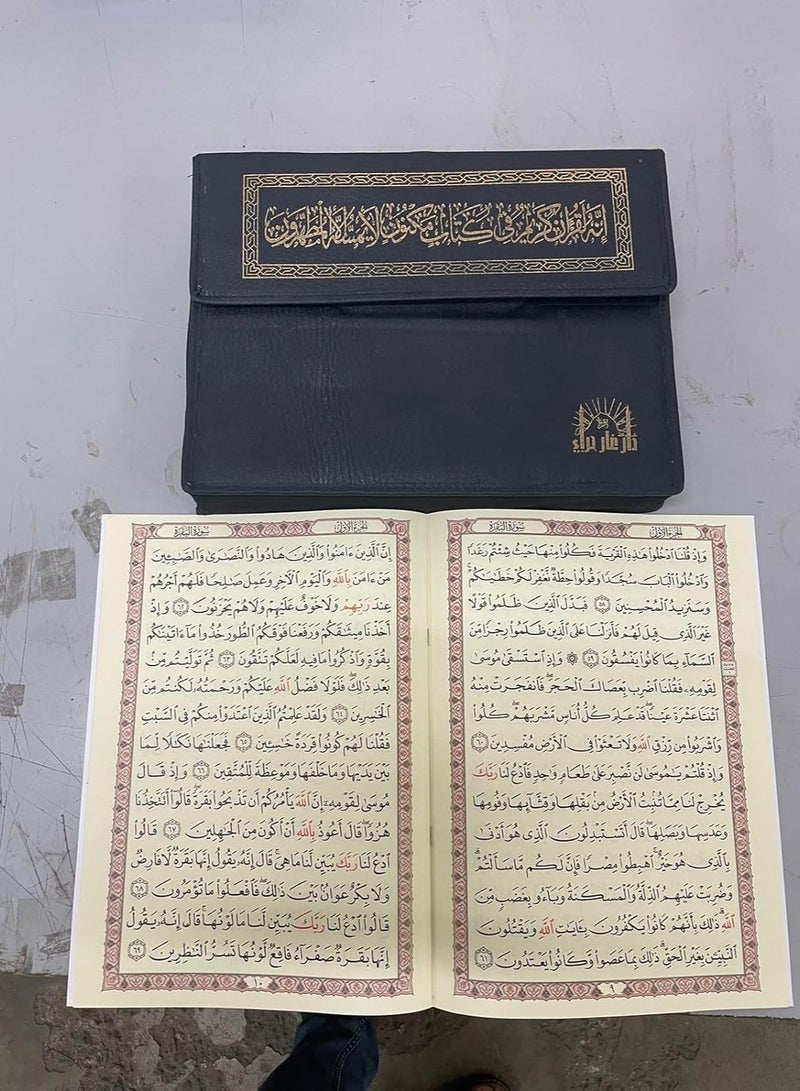 إِنَّهُ لَقُرْآنٌ كَرِيمٌ فِي كِتَابٍ مَكْنُونٍ لَا يَمَسُّهُ إِلَّا الْمُطَهَّرُونَ
دار غار حراء
الجزء الأول سورة البقرة
وَإِذْ قُلْنَا ٱدْخُلُوا۟ هَٰذِهِ ٱلْقَرْيَةَ فَكُلُوا۟ مِنْهَا حَيْثُ شِئْتُمْ رَغَدًا
وَٱدْخُلُوا۟ ٱلْبَابَ سُجَّدًا وَقُولُوا۟ حِطَّةٌ نَّغْفِرْ لَكُمْ خَطَٰيَٰكُمْ ۚ
وَسَنَزِيدُ ٱلْمُحْسِنِينَ ٥٨ فَبَدَّلَ ٱلَّذِينَ ظَلَمُوا۟ قَوْلًا
غَيْرَ ٱلَّذِى قِيلَ لَهُمْ فَأَنزَلْنَا عَلَى ٱلَّذِينَ ظَلَمُوا۟ رِجْزًا مِّنَ
ٱلسَّمَآءِ بِمَا كَانُوا۟ يَفْسُقُونَ ٥٩ ۞ وَإِذِ ٱسْتَسْقَىٰ مُوسَىٰ
لِقَوْمِهِۦ فَقُلْنَا ٱضْرِب بِّعَصَاكَ ٱلْحَجَرَ ۖ فَٱنفَجَرَتْ مِنْهُ
ٱثْنَتَا عَشْرَةَ عَيْنًا ۖ قَدْ عَلِمَ كُلُّ أُنَاسٍ مَّشْرَبَهُمْ ۖ كُلُوا۟
وَٱشْرَبُوا۟ مِن رِّزْقِ ٱللَّهِ وَلَا تَعْثَوْا۟ فِى ٱلْأَرْضِ مُفْسِدِينَ ٦٠
وَإِذْ قُلْتُمْ يَٰمُوسَىٰ لَن نَّصْبِرَ عَلَىٰ طَعَامٍ وَٰحِدٍ فَٱدْعُ لَنَا رَبَّكَ
يُخْرِجْ لَنَا مِمَّا تُنۢبِتُ ٱلْأَرْضُ مِنۢ بَقْلِهَا وَقِثَّآئِهَا وَفُومِهَا
وَعَدَسِهَا وَبَصَلِهَا ۖ قَالَ أَتَسْتَبْدِلُونَ ٱلَّذِى هُوَ أَدْنَىٰ
بِٱلَّذِى هُوَ خَيْرٌ ۚ ٱهْبِطُوا۟ مِصْرًا فَإِنَّ لَكُم مَّا سَأَلْتُمْ ۗ
وَضُرِبَتْ عَلَيْهِمُ ٱلذِّلَّةُ وَٱلْمَسْكَنَةُ وَبَآءُو بِغَضَبٍ مِّنَ
ٱللَّهِ ۗ ذَٰلِكَ بِأَنَّهُمْ كَانُوا۟ يَكْفُرُونَ بِـَٔايَٰتِ ٱللَّهِ وَيَقْتُلُونَ
ٱلنَّبِيِّـۧنَ بِغَيْرِ ٱلْحَقِّ ۗ ذَٰلِكَ بِمَا عَصَوا۟ وَّكَانُوا۟ يَعْتَدُونَ ٦١
٩
الجزء الأول سورة البقرة
إِنَّ ٱلَّذِينَ ءَامَنُوا۟ وَٱلَّذِينَ هَادُوا۟ وَٱلنَّصَٰرَىٰ وَٱلصَّٰبِـِٔينَ
مَنْ ءَامَنَ بِٱللَّهِ وَٱلْيَوْمِ ٱلْءَاخِرِ وَعَمِلَ صَٰلِحًا فَلَهُمْ أَجْرُهُمْ
عِندَ رَبِّهِمْ وَلَا خَوْفٌ عَلَيْهِمْ وَلَا هُمْ يَحْزَنُونَ ٦٢ وَإِذْ
أَخَذْنَا مِيثَٰقَكُمْ وَرَفَعْنَا فَوْقَكُمُ ٱلطُّورَ خُذُوا۟ مَآ ءَاتَيْنَٰكُم
بِقُوَّةٍ وَٱذْكُرُوا۟ مَا فِيهِ لَعَلَّكُمْ تَتَّقُونَ ٦٣ ثُمَّ تَوَلَّيْتُم مِّنۢ
بَعْدِ ذَٰلِكَ ۖ فَلَوْلَا فَضْلُ ٱللَّهِ عَلَيْكُمْ وَرَحْمَتُهُۥ لَكُنتُم مِّنَ
ٱلْخَٰسِرِينَ ٦٤ وَلَقَدْ عَلِمْتُمُ ٱلَّذِينَ ٱعْتَدَوْا۟ مِنكُمْ فِى ٱلسَّبْتِ
فَقُلْنَا لَهُمْ كُونُوا۟ قِرَدَةً خَٰسِـِٔينَ ٦٥ فَجَعَلْنَٰهَا نَكَٰلًا لِّمَا
بَيْنَ يَدَيْهَا وَمَا خَلْفَهَا وَمَوْعِظَةً لِّلْمُتَّقِينَ ٦٦ وَإِذْ قَالَ
مُوسَىٰ لِقَوْمِهِۦٓ إِنَّ ٱللَّهَ يَأْمُرُكُمْ أَن تَذْبَحُوا۟ بَقَرَةً ۖ قَالُوٓا۟ أَتَتَّخِذُنَا
هُزُوًا ۖ قَالَ أَعُوذُ بِٱللَّهِ أَنْ أَكُونَ مِنَ ٱلْجَٰهِلِينَ ٦٧ قَالُوا۟
ٱدْعُ لَنَا رَبَّكَ يُبَيِّن لَّنَا مَا هِىَ ۚ قَالَ إِنَّهُۥ يَقُولُ إِنَّهَا بَقَرَةٌ لَّا فَارِضٌ
وَلَا بِكْرٌ عَوَانٌۢ بَيْنَ ذَٰلِكَ ۖ فَٱفْعَلُوا۟ مَا تُؤْمَرُونَ ٦٨
قَالُوا۟ ٱدْعُ لَنَا رَبَّكَ يُبَيِّن لَّنَا مَا لَوْنُهَا ۚ قَالَ إِنَّهُۥ يَقُولُ
إِنَّهَا بَقَرَةٌ صَفْرَآءُ فَاقِعٌ لَّوْنُهَا تَسُرُّ ٱلنَّٰظِرِينَ ٦٩
١٠